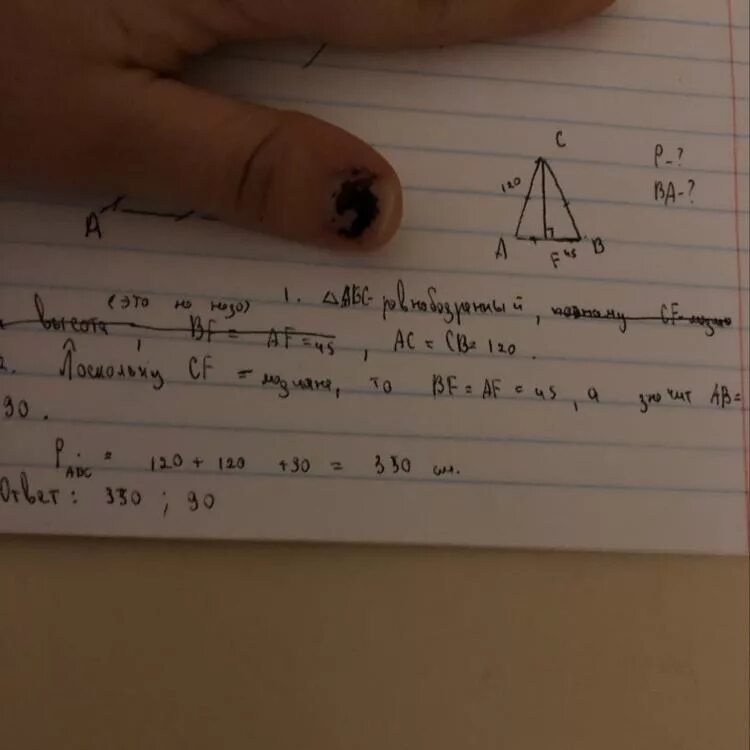 C
P-?
120
BA-?
A
A
B
F 45
(это не надо) 1. △ABC- равнобедренный, поэтому CF-медиана
высота, BF = AF = 45, AC = CB = 120.
2. Поскольку CF = медиана, то BF = AF = 45, а значит AB=
90.
P ABC = 120 + 120 + 90 = 330 см.
Ответ: 330 ; 90